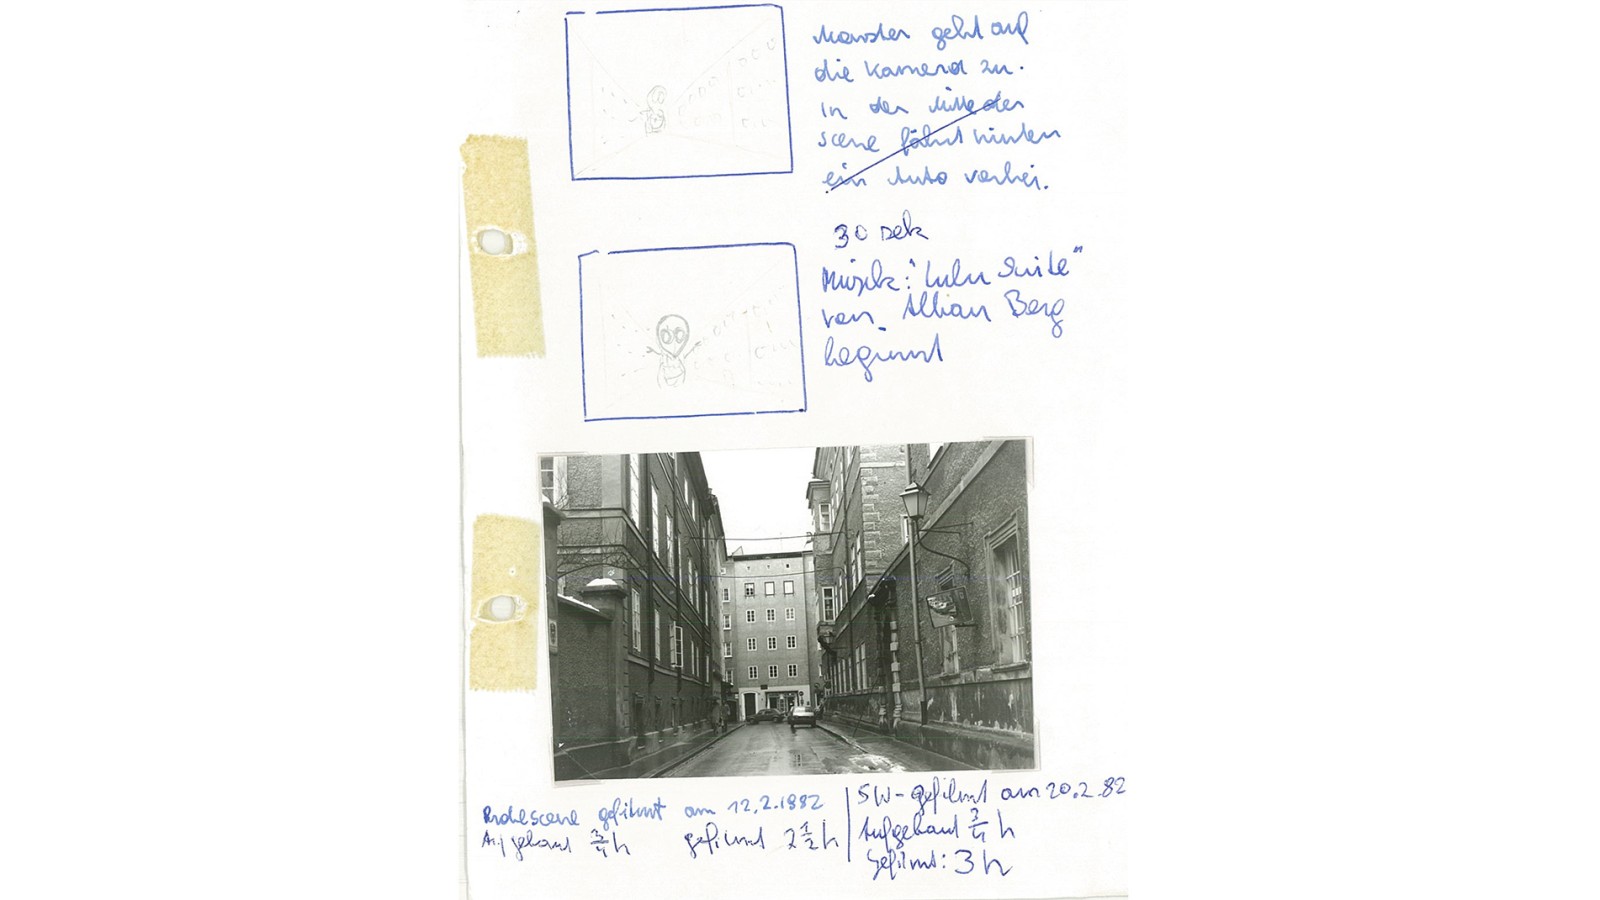 Monster geht auf
die Kamera zu.
in der Mitte der
scene fährt hinten
ein Auto vorbei.
30 sek
Musik: "Lulu Suite"
von Alban Berg
beginnt
Probescene gefilmt am 12.2.1982
Aufgebaut 3/4 h gefilmt 2 1/2 h
SW-gefilmt am 20.2.82
Aufgebaut 3/4 h
Gefilmt: 3 h